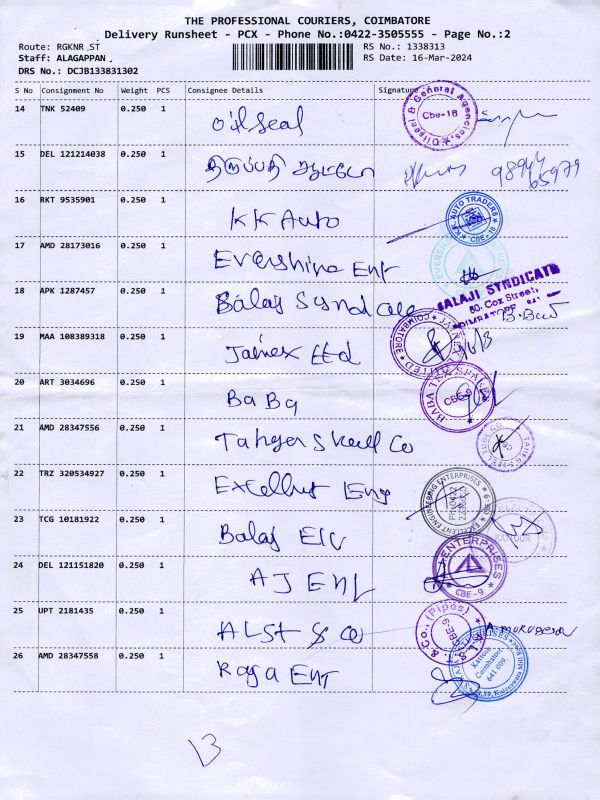 THE PROFESSIONAL COURIERS, COIMBATORE
Delivery Runsheet - PCX - Phone No.:0422-3505555 - Page No.:2
Route: RGKNR ST RS No.: 1338313
Staff: ALAGAPPAN . RS Date: 16-Mar-2024
DRS No.: DCJB133831302
S No Consignment No Weight PCS Consignee Details Signature
14 TNK 52409 0.250 1 oilseal Oilseal & General Agencies, Cbe-18
15 DEL 121214038 0.250 1 திருப்பதி ஆட்டோ 98944 65979
16 RKT 9535901 0.250 1 KK Auto K.K. AUTO TRADERS CBE-18
17 AMD 28173016 0.250 1 Evershine Ent EVERSHINE
18 APK 1287457 0.250 1 Balaj Syndicate BALAJI SYNDICATE
80, Cox Street,
19 MAA 108389318 0.250 1 Jainex Ltd COIMBATORE LIMITED 16/3
20 ART 3034696 0.250 1 BaBa BABA CBE-9
21 AMD 28347556 0.250 1 Co
22 TRZ 320534927 0.250 1 Excellent Eng EXCELLENT ENGINEERING ENTERPRISES
23 TCG 10181922 0.250 1 Balaj
24 DEL 121151820 0.250 1 AJ Ent ENTERPRISES CBE-9
25 UPT 2181435 0.250 1 & Co & Co., (Pipes) CBE-9 A. MURUGESAN
26 AMD 28347558 0.250 1 Raja Ent Kattoor Coimbatore 641 009.
13